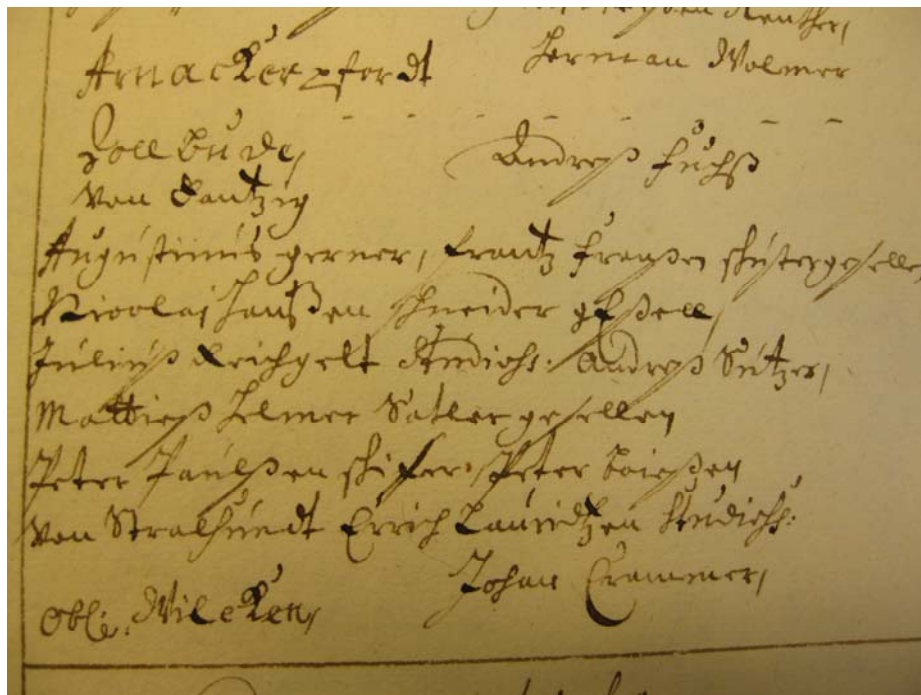 Arnackerpfordt Herman Wolmer
Zollbude,
Andreß Fuchß
Von Dantzig
Augustinus gerner, Frantz Franßen schustergeselle
Nicolai Hanßen schneider geßell,
Juliuß Reichgelt Studiosus: Andreß Sutzer,
Mattieß Helmer Satler gesellen
Peter Paulßen schifer, Peter Boießen
Von Stralsundt Errich Lauridtzen Studiosus:
Johan Crammer,
Obli: Wilcken,